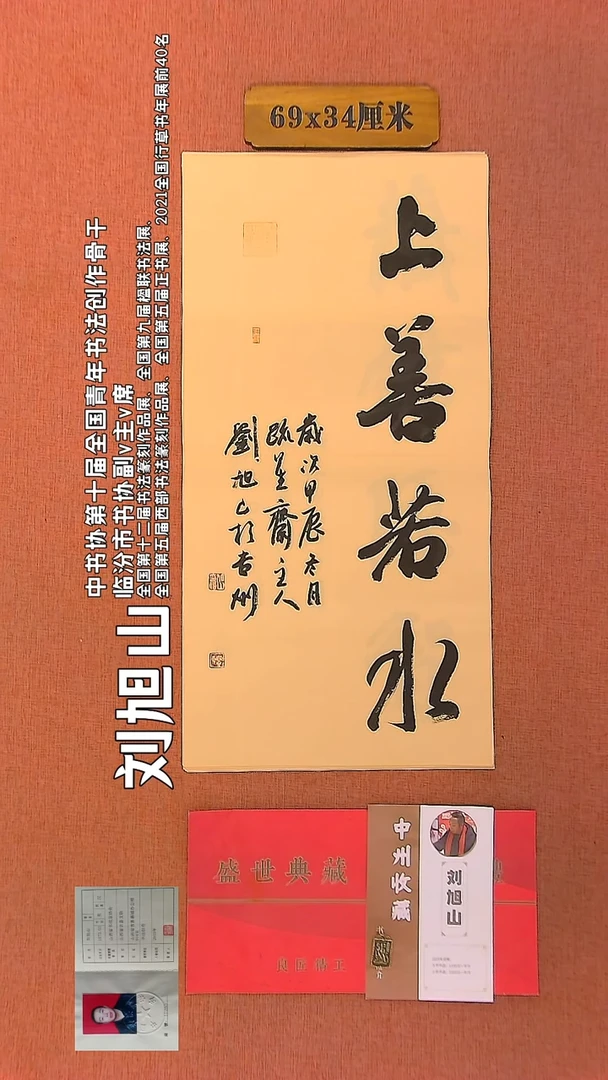 69x34厘米
上善若水
歲次甲辰冬月
疏并齋主人
劉旭山於吉州
中书协第十届全国青年书法创作骨干
临汾市书协副v主v席
全国第十二届书法篆刻作品展、全国第九届楹联书法展、
全国第五届西部书法篆刻作品展、全国第五届正书展、2021全国行草书年展前40名
刘旭山
盛世典藏
中州收藏
刘旭山